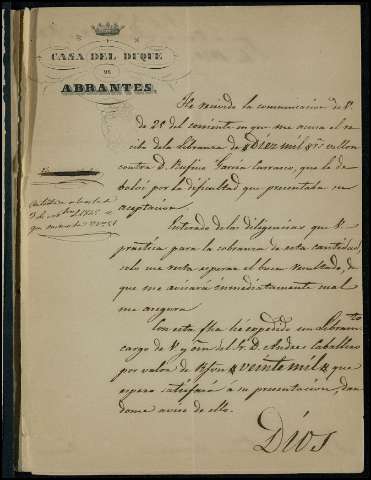 CASA DEL DUQUE
DE
ABRANTES.
He recivido la comunicacion de V.
de 28 del corriente en que me acusa el re
cibo de la Libranza de Diez mil r.s vellon
contra D. Rufino Garcia Carrasco, que le de
bolvi por la dificultad que presentaba su
aceptacion.
Enterado de las diligencias que V.
practica para la cobranza de esta cantidad,
solo me resta esperar el buen resultado, de
que me avisará inmediatamente cual
me asegura.
Con esta fha he espedido un Libram.to
cargo de V. y órn del Sr. D. Andres Caballero
por valor de Rsvn veinte mil que
espero satisfará á su presentacion, dan
dome aviso de ello.
Dios